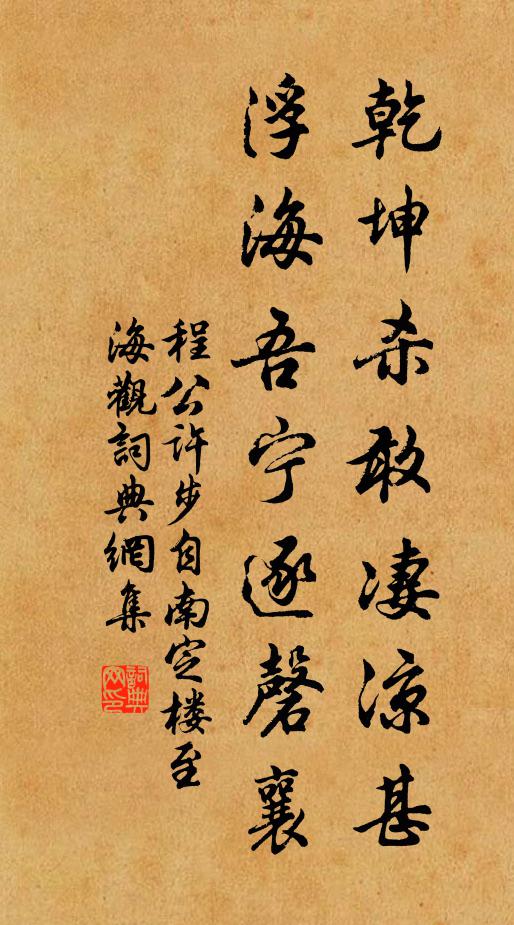 乾坤杀敢凄凉甚
浮海吾宁逐磬襄
程公许步自南定楼至
海觀詞典網集
詞典
网印